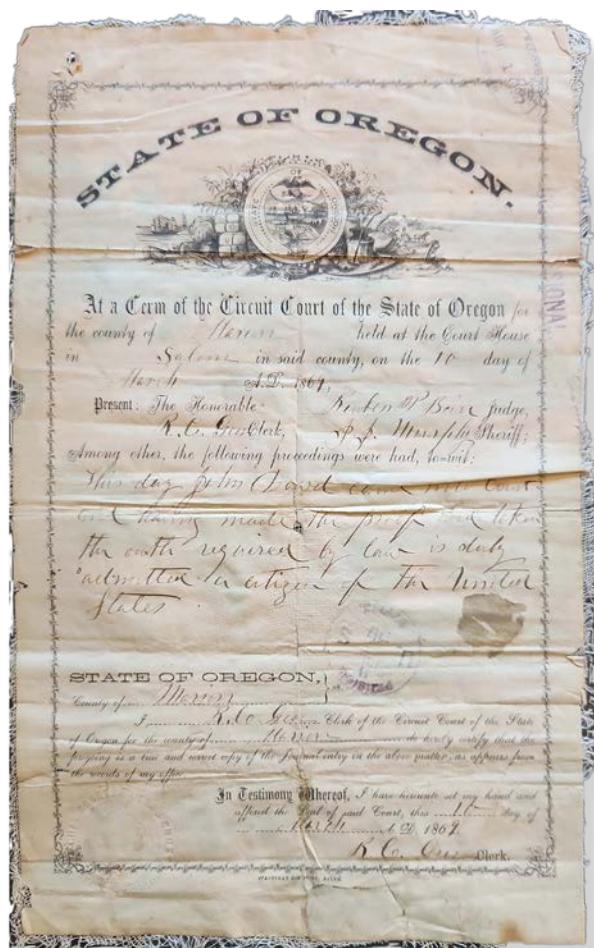 STATE OF OREGON.
At a Term of the Circuit Court of the State of Oregon for
the county of Marion held at the Court House
in Salem in said county, on the 10 day of
March A.D. 1869,
Present: The Honorable Reuben P. Judge,
R. C. Clerk, J. J. Murphy Sheriff;
Among other, the following proceedings were had, to-wit:
This day John David came into Court
and having made the proof and taken
the oath required by law is duly
admitted a citizen of the United
States.
STATE OF OREGON,
County of Marion
I R. C. Clerk of the Circuit Court of the State
of Oregon for the county of Marion do hereby certify that the
foregoing is a true and correct copy of the Journal entry in the above matter, as appears from
the records of my office.
In Testimony Whereof, I have hereunto set my hand and
affixed the Seal of said Court, this 10 day of
March A.D. 1869.
R. C. Clerk.